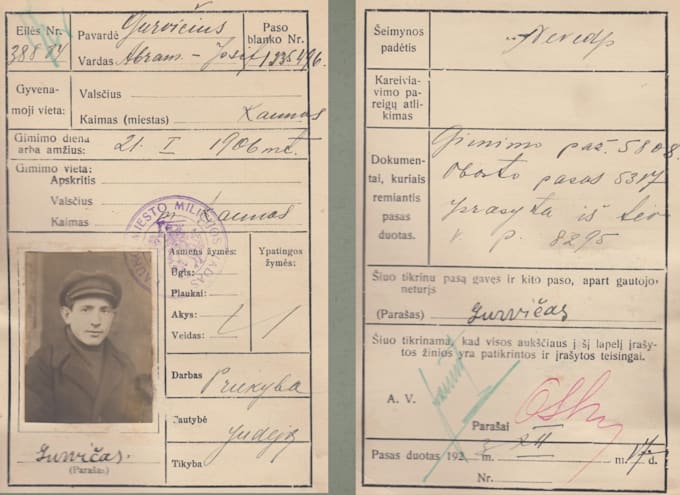 Eilės Nr. 38884
Pavardė Gurvičius
Vardas Abram-Josif
Paso blanko Nr. 1235496.
Gyvenamoji vieta:
Valsčius
Kaimas (miestas) Kaunas
Gimimo diena arba amžius: 21. I 1906 mt.
Gimimo vieta:
Apskritis
Valsčius
Kaimas m. Kaunas
MIESTO MILICIJOS
Asmens žymės:
Ūgis:
Plaukai:
Akys:
Veidas:
Ypatingos žymės:
Darbas
Prekyba
Tautybė
Judėjų
Tikyba
Gurvičas.
(Parašas)
Šeimynos padėtis
Neved.
Kareiviavimo pareigų atlikimas
Dokumentai, kuriais remiantis pasas duotas.
Gimimo paž. 5808.
pasas 5317
prašyta iš
V. P. 8295
Šiuo tikrinu pasą gavęs ir kito paso, apart gautojo, neturįs
(Parašas) Gurvičas
Šiuo tikrinama, kad visos aukščiaus į šį lapelį įrašytos žinios yra patikrintos ir įrašytos teisingai.
A. V.
Parašai
Pasas duotas 192 m. XII m. 17 d.
Nr.